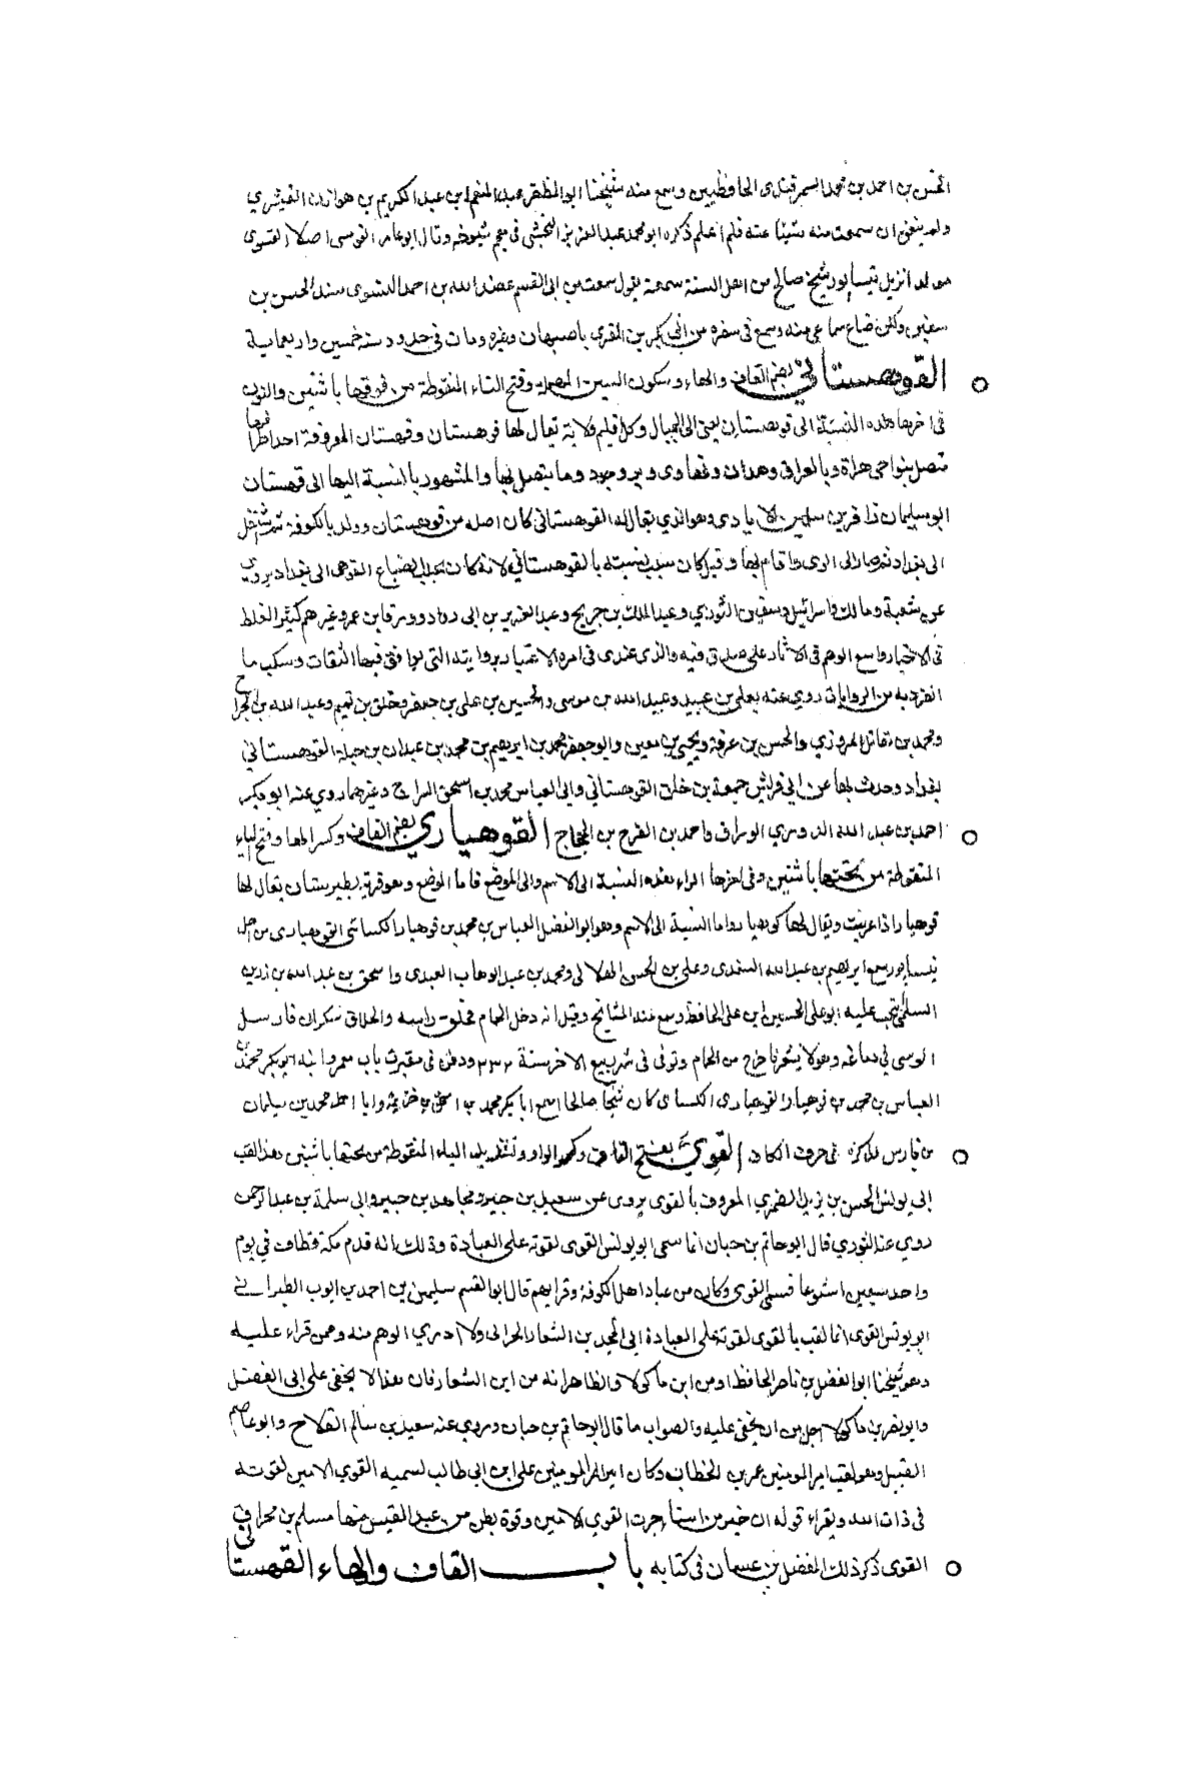 الحسن بن احمد بن محمد السمرقندى الحافظيين وسمع منه شيخنا ابو المظفر عبد المنعم بن عبد الكريم بن هوازن القشيري
ولم يتفق ان سمعت منه شيئا عنه فلم اعلم ذكره ابو محمد عبد العزيز النخشبى فى معجم شيوخه وقال ابو عامر القومسى اصلا النسوى
مولدا نزيل نيسابور شيخ صالح من اهل السنة سمعته يقول سمعت من ابى القسم عبد الله بن احمد النسوى مسند الحسن بن
سفين ولكن ضاع سماعى منه وسمع فى سفره من ابى بكر بن المقري باصبهان وغيره ومات فى حدود سنة خمسين واربعماية
القوهستاني بضم القاف والهاء وسكون السين المهملة وفتح التاء المنقوطة من فوقها باثنتين والنون
فى اخرها هذه النسبة الى قوهستان يعنى الى الجبال وكل اقليم ولاية يقال لها قوهستان وقهستان المعروفة احد اطرافها
متصل بنواحى هراة وبالعراق وهمدان ونهاوند وبروجرد وما يتصل بها والمشهور بالنسبة اليها الى قهستان
ابو سليمان زافر بن سليمن الايادى وهو الذي يقال له القوهستانى كان اصله من قوهستان وولد بالكوفة ثم انتقل
الى بغداد ثم صار الى الرى واقام بها وقيل كان سبب نسبته بالقوهستاني لانه كان يجلب المتاع القوهى الى بغداد يروى
عن شعبة ومالك واسرائيل وسفين الثوري وعبد الملك بن جريج وعبد العزيز بن ابى رواد وورقا بن عمر وغيرهم كثير الغلط
فى الاخبار واسع الوهم فى الاثار على صدق فيه والذى عندى فى امره الاعتبار بروايته التى يوافق فيها الثقات وسكب ما
انفرد به من الروايات روى عنه يعلى بن عبيد وعبيد الله بن موسى والحسين بن على بن جعفر وخلق بن تميم وعبد الله بن الجراح
ومحمد بن مقاتل المروزي والحسن بن عرفة ويحيى بن معين وابو جعفر محمد بن ابرهيم بن محمد بن عبدان بن جبلة القوهستاني
بغداد وحدث بها عن ابى قريش جمعة بن خلف القوهستاني وابى العباس محمد بن اسحق السراج وغيرهما روي عنه ابو بكر
احمد بن عبد الله الدوري الوراق واحمد بن الفرج بن الحجاج القوهياري بضم القاف وكسر الهاء وفتح الياء
المنقوطة من تحتها باثنتين وفى اخرها الراء هذه النسبة الى الاسم والى الموضع فاما الموضع وهو قرية بطبرستان يقال لها
قوهيار اذا عربت ويقال لها كوهيار واما النسبة الى الاسم وهو ابو الفضل العباس بن محمد بن قوهيار الكسائى القوهيارى من اهل
نيسابور سمع ابرهيم بن عبد الله السعدى وعلى بن الحسن الهلالى ومحمد بن عبد الوهاب العبدى واسحق بن عبد الله بن رزين
السلمى انتخب عليه ابو على الحسين بن على الحافظ وسمع منه المشايخ وقيل انه دخل الحمام فحلق راسه والحلاق سكران فارسل
الموسى فى دماغه وهو لا يشعر فاخرج من الحمام وتوفى فى شهر ربيع الاخر سنة ٣٣٢ ودفن فى مقبرة باب معمر وابنه ابو بكر محمد بن
العباس بن محمد بن قوهيار القوهيارى الكسائى كان شيخا صالحا سمع ابا بكر محمد بن اسحق بن خزيمة وابا احمد محمد بن سليمان
بن فارس فى حرف الكاف القوي بفتح القاف وكسر الواو وتشديد الياء المنقوطة من تحتها باثنتين هذا لقب
ابى يونس الحسن بن يزيد الضمري المعروف بالقوى يروى عن سعيد بن جبير ومجاهد بن جبير وابى سلمة بن عبد الرحمن
روي عنه الثوري قال ابو حاتم بن حبان انما سمى ابو يونس القوى لقوته على العبادة وذلك انه قدم مكة فطاف في يوم
واحد سبعين اسبوعا فسمى القوى وكان من عباد اهل الكوفة وقرايهم قال ابو القسم سليمن بن احمد بن ايوب الطبرانى
ابو يونس القوى انما لقب بالقوى لقوته على العبادة ابى المجد بن الشعار الحرانى ولا ادري الوهم منه وممن قراء عليه
وهو شيخنا ابو الفضل بن ناصر الحافظ او من ابن ماكولا والظاهر انه من ابن الشعار فان هذا لا يخفى على ابى الفضل
وابو نصر بن ماكولا اجل من ان يخفى عليه والصواب ما قال ابو حاتم بن حبان وروي عنه سعيد بن سالم القداح وابو عاصم
النبيل وهو لقب امير المومنين عمر بن الخطاب وكان امير المومنين على ابن ابى طالب لسميه القوي الامين لقوته
فى ذات الله ويقراء قوله ان خير من استاجرت القوي الامين وقوة بطن من عبد القيس منها مسلم بن مخراق
القوى ذكر ذلك المفضل بن غسان فى كتابه باب القاف والهاء القهستانى